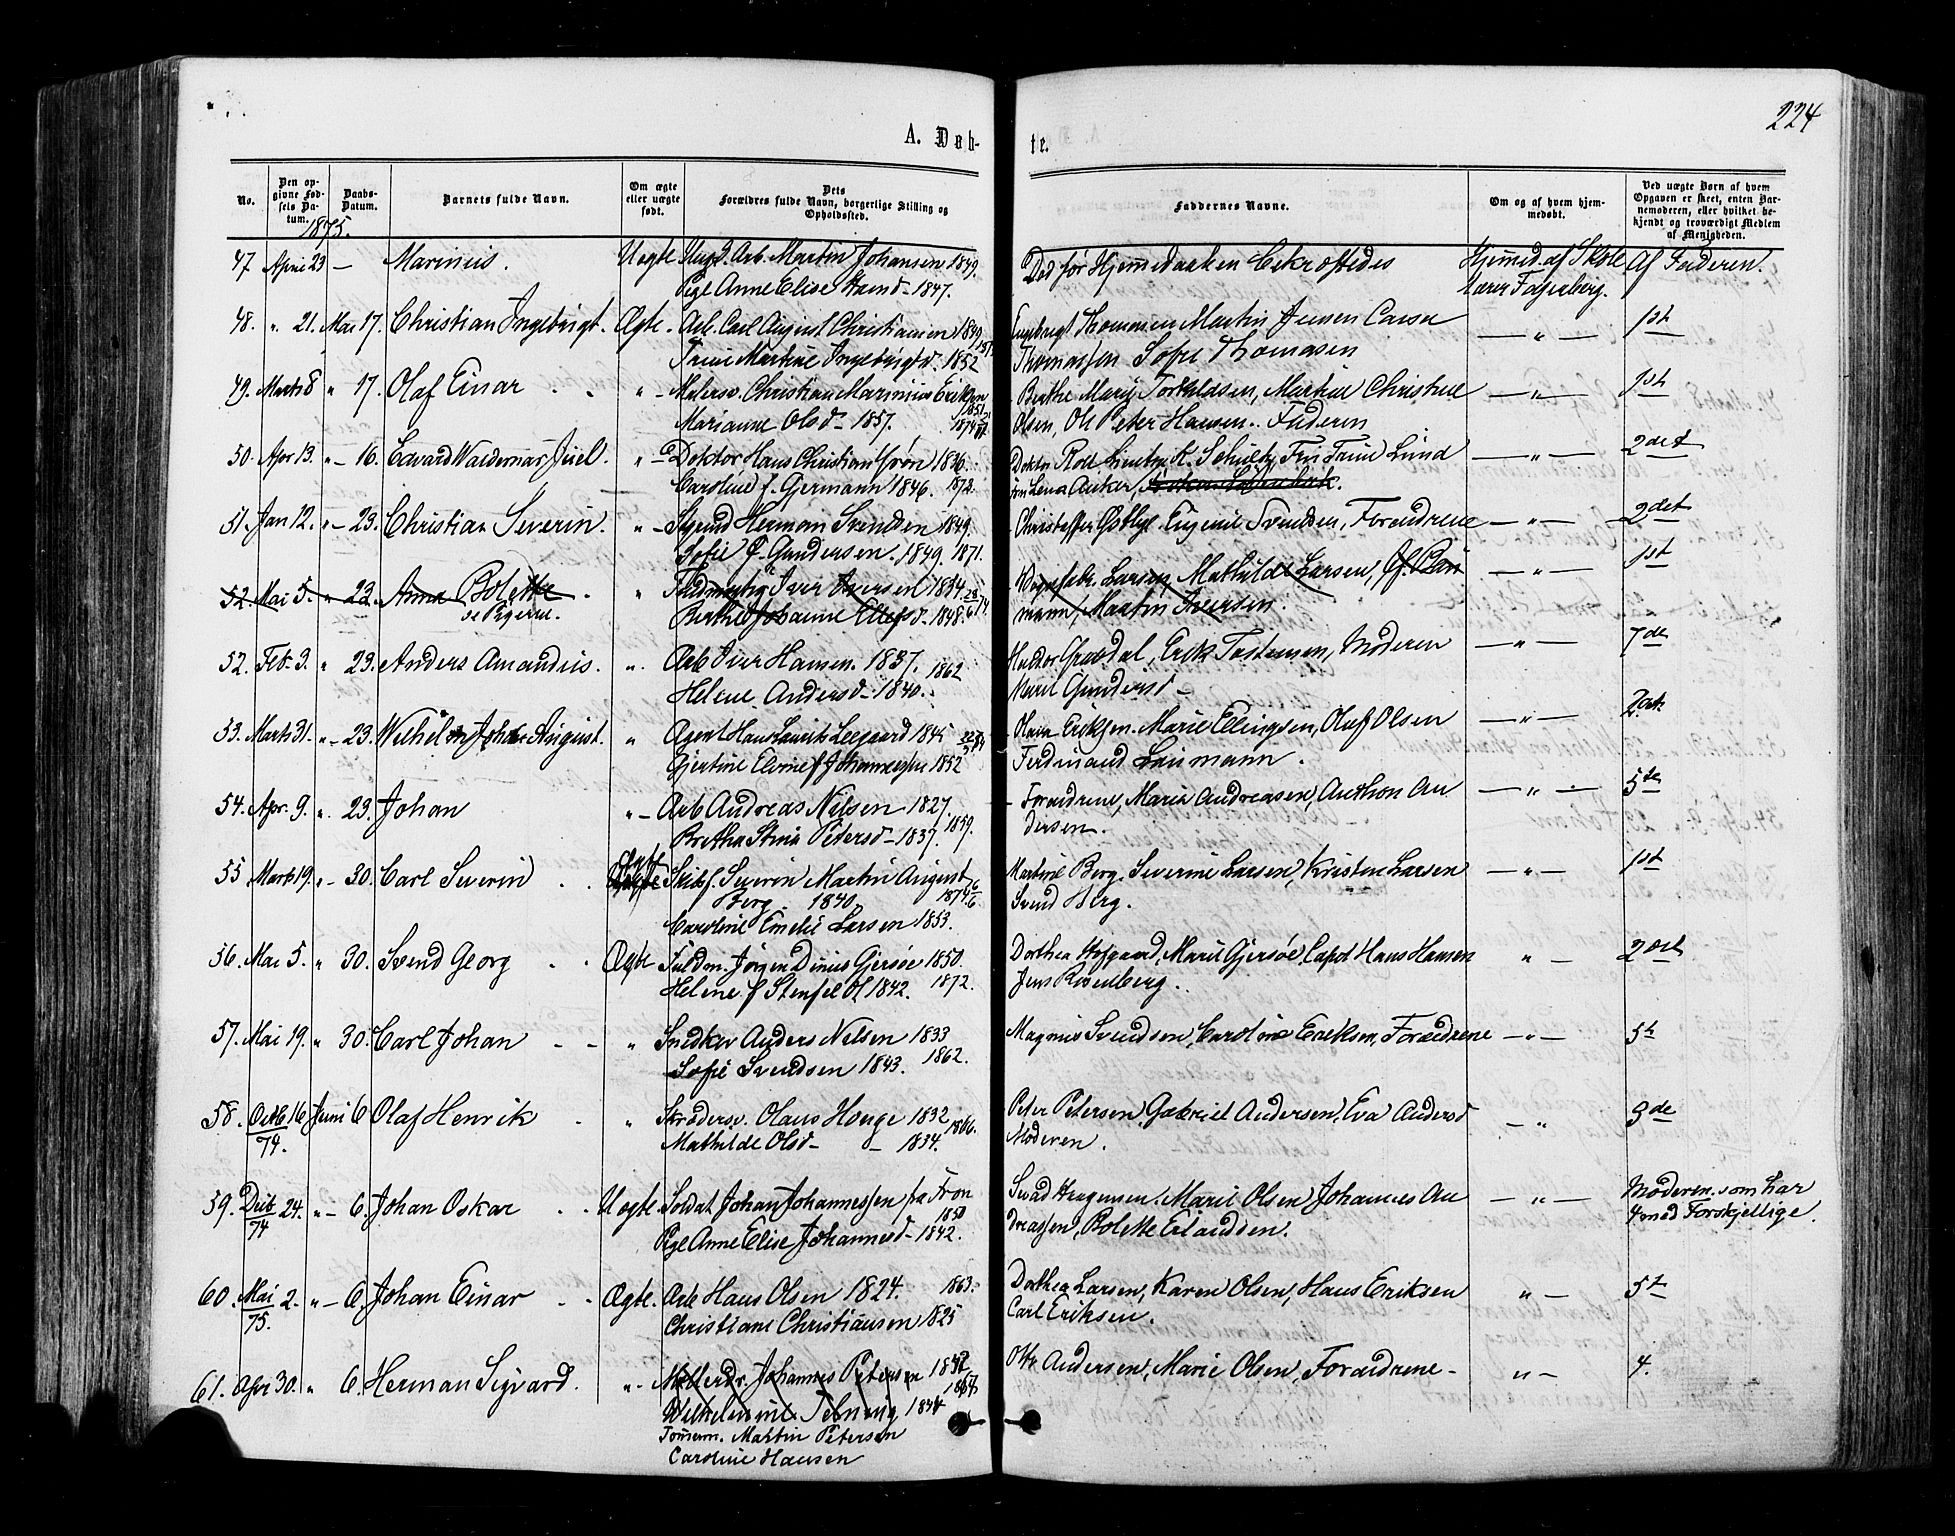 224
A. Døb-
te.
No.
Den opgivne Fødsels Datum.
Daabs-Datum.
Barnets fulde Navn.
Om ægte eller uægte født.
Dets Forældres fulde Navn, borgerlige Stilling og Opholdsted.
Faddernes Navne.
Om og af hvem hjemmedøbt.
Ved uægte Børn af hvem Opgaven er skeet, enten Barnemoderen, eller hvilket bekjendt og troværdigt Medlem af Menigheden.
1875.
47 April 23 — Marinius. Uægte Ungk. Arb. Martin Johansen 1849. Død før Hjemmedaaben bekræftedes Hjemmed. af Skole Af Faderen.
Pige Anne Elise 1847. lærer Fagerberg.
48. " 21. Mai 17. Christian Ingebrigt. Ægte. Arb. Carl August Christiansen 1849 Engebrigt Thomasen Martin Jensen — " — 1st
Martine Ingebrigtsd. 1852 Thomassen Sofie Thomasen
49. Marts 8 " 17. Olaf Einar " — Malersv. Christian Marinius Eriksen Berthe Marie Torkildsen, Martine Christine — " — 1st
1851
Marianne Olsd — 1857. 1874 Olsen, Ole Peter Hansen. Faderen
50. Apr 13. " — 16. Edvard Waldemar Juel. " — Doktor Hans Christian Grøn 1836. Doktor Roll K. Schultz, Frk Trine Lund — " — 2det
Caroline f. Gjermann 1846. 1872. Lena Anker,
51. Jan 12. " — 23. Christian Severin. " — Herman Svendsen 1849. Christoffer Østbye Eugenie Svendsen, Forældrene — " — 2det
Sofie f. Gundersen. 1849. 1871.
52. Mai 5. " 23. Anna Bolette " Fuldmægtig Iver Iversen 1844 Larsen, Mathilde Larsen, — " — 1st
se Pigerne. Berthe Johanne Ellefsd. 1848. Martin Iversen.
52. Feb. 3. " 23. Anders Amandus. " Arb Iver Hansen. 1837. 1862 Grøndal, Erik Torstensen, Moderen — " — 7de
Helene Andersd — 1840. Maret Gundersd —
53. Marts 31. " — 23. Wilhelm Johan August. " Agent Hans Lauritz Leegaard 1845 Olava Eriksen. Marie Ellingsen, Olaf Olsen — " — 2det
Gjertine Elvine f Johannessen 1852 Ferdinand Laumann.
54. Apr. 9. " 23. Johan " — Arb Andreas Nilsen 1827. Forældrene, Maria Andreasen, Anthon An — " — 5te
Bretha Stina Petersd — 1837. 1859. dersen.
55 Marts 19. " — 30. Carl Severin Skibsf. Severin Martin August Martine Berg. Severine Larsen, Kristen Larsen — " — 1st
Berg 1840. 1874 Svend Berg.
Caroline Emilie Larsen 1853.
56. Mai 5. " 30. Svend Georg Ægte Fuldm. Jørgen Dinus Gjersøe 1850. Dorthea Hofgaard, Marie Gjersøe, Capt Hans Hansen " — 2det
Helene f Stenfeldt 1842. 1872. Jens Rosenberg.
57. Mai 19. " 30. Carl Johan " Snedker Anders Nilsen 1833 Magnus Svendsen, Caroline Eriksen, Forældrene — " — 5t
Sofie Svendsen 1843. 1862.
58. Octb 16 Juni 6. Olaf Henrik " Skrædersv. Olaus Houge 1832 Peter Petersen, Gabriel Andersen, Eva Andersd — " 3de
74. Mathilde Olsd — — 1834. 1866. Moderen.
59. Decb 24. " — 6. Johan Oskar Uægte. Soldat Johan Johannessen fra Fron Hagensen. Marie Olsen Johannes An — " — Moderen. som har
74 1850 4 med Forskjellige.
Pige Anne Elise Johannesd — 1842. dreassen, Bolette Erlandsen.
60. Mai 2. " — 6. Johan Einar Ægte. Arb Hans Olsen 1824. 1863. Dorthea Larsen, Karen Olsen, Hans Eriksen " — 5t
75. Christiane Christiansen 1825 Carl Eriksen.
61. Apr 30. " 6. Herman Sigvard. " — Johannes Petersen 1842 Otto Andersen, Marie Olsen, Forældrene — " — 4.
Wilhelmine 1844
Tømerm. Martin Petersen
Caroline Hansen